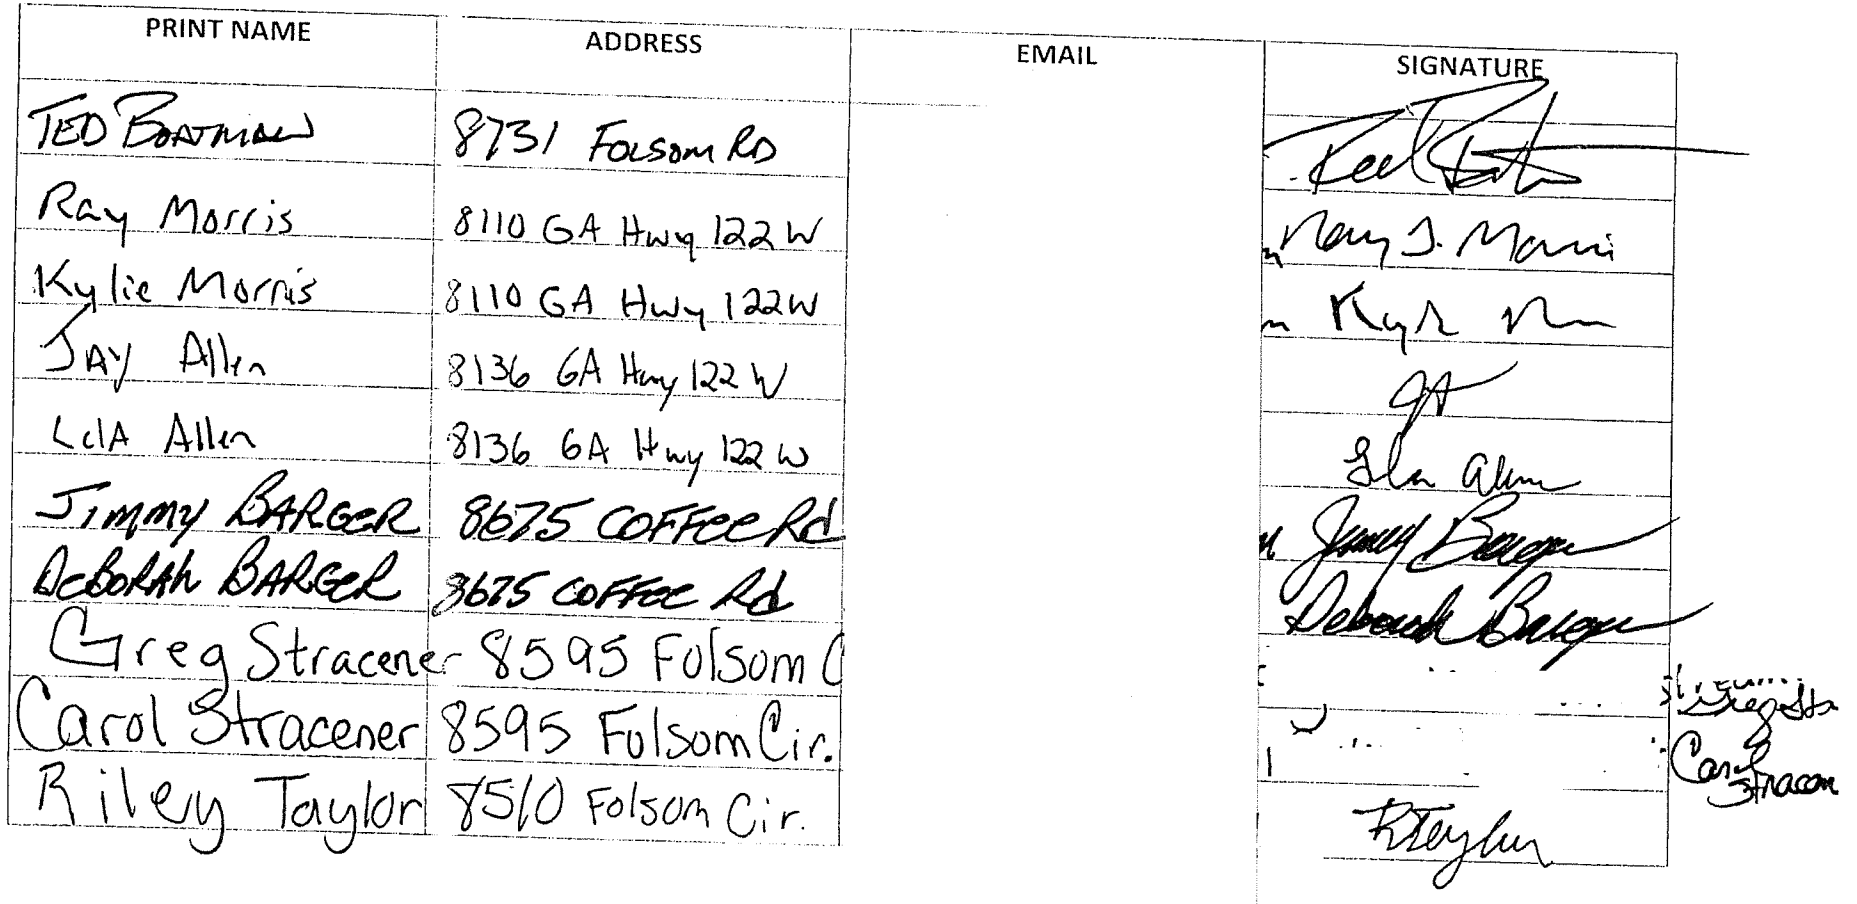 PRINT NAME ADDRESS EMAIL SIGNATURE
TED BOATMAN 8731 FOLSOM RD Ted
Ray Morris 8110 GA Hwy 122 W Ray J. Morris
Kylie Morris 8110 GA Hwy 122 W
JAY Allen 8136 GA Hwy 122 W JA
LelA Allen 8136 GA Hwy 122 W
Jimmy BARGER 8675 COFFee Rd Jimmy Barger
DeBORAh BARGeR 8675 COFFee Rd Deborah Barger
Greg Stracener 8595 Folsom C Greg Sta
Carol Stracener 8595 Folsom Cir. Carol Stracen
Riley Taylor 8510 Folsom Cir. RTaylor